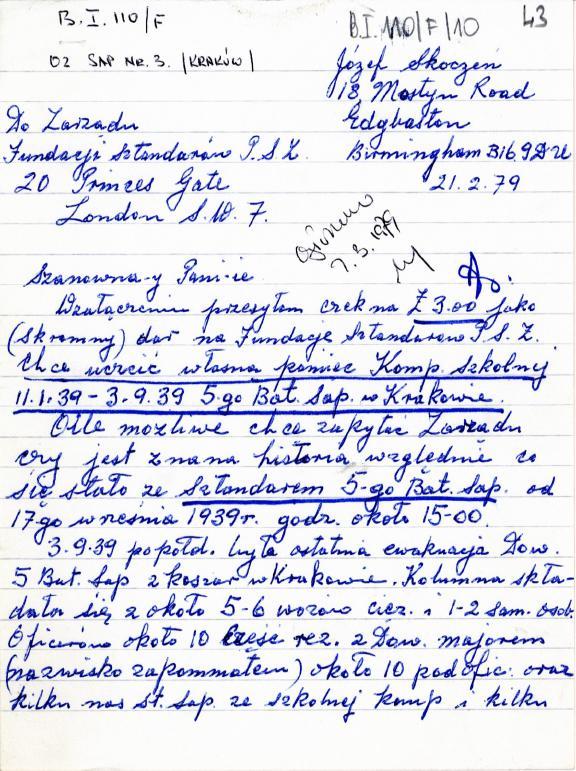 B.I. 110/F
B.I. 110/F/10
43
OZ SAP NR. 3. /KRAKÓW/
Józef Skoczeń
18 Mostyn Road
Edgbaston
Birmingham B16 9DZ
21.2.79
Do Zarządu
Fundacji Sztandarów P.S.Z.
20 Princes Gate
London S.W.7.
7.3.1979
Szanowna-y Pani-ie
Wzałączeniu przesyłam czek na £ 3.00 jako
(skromny) dar na Fundację Sztandarów P.S.Z.
Chcę uczcić własną pamięć Komp. Szkolnej
11.1.39 - 3.9.39 5-go Bat. Sap. w Krakowie.
Oile możliwe chcę zapytać Zarządu
czy jest znana historia względnie co
się stało ze Sztandarem 5-go Bat. Sap. od
17-go września 1939r. godz. około 15-00.
3.9.39 popołd. była ostatnia ewakuacja Dow.
5 Bat. Sap z koszar w Krakowie. Kolumna skła-
dała się z około 5-6 wozów cięż. i 1-2 sam. osob.
Oficerów około 10 część rez. z Dow. majorem
(nazwisko zapomniałem) około 10 podofic. oraz
kilku nas st. Sap. ze szkolnej komp i kilku